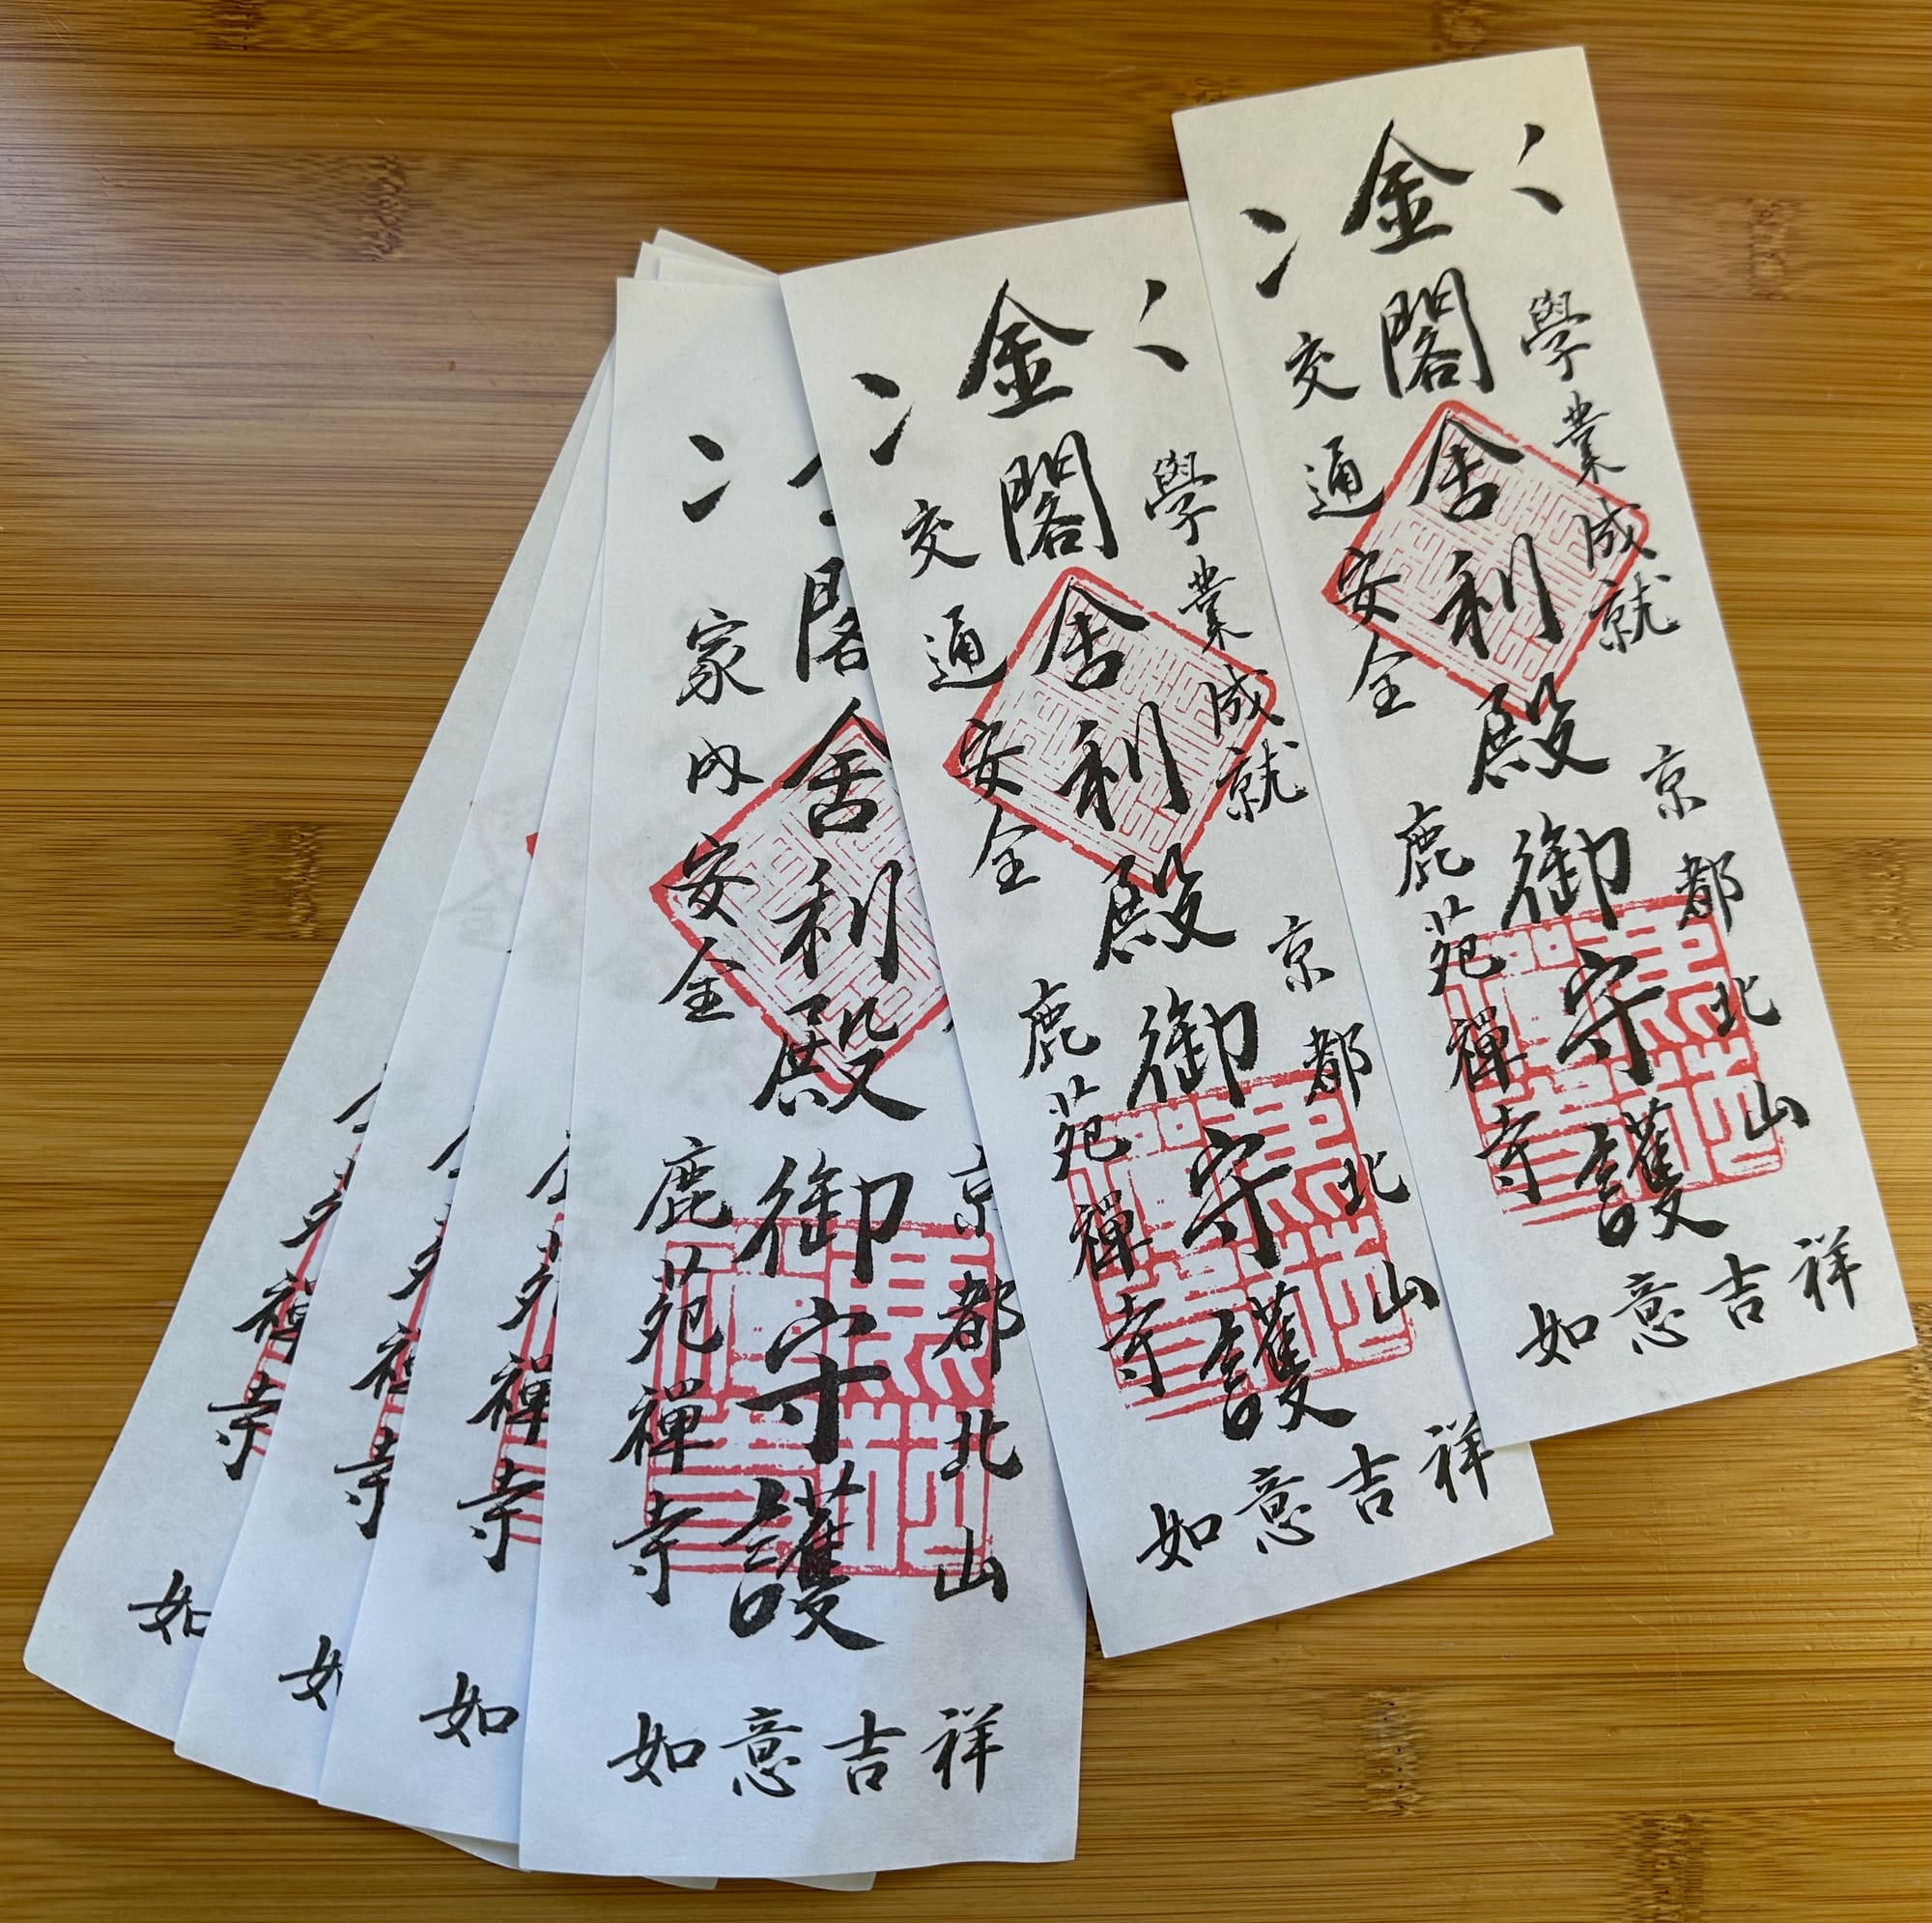 金閣舍利殿御守護
學業成就
交通安全
京都北山
鹿苑禅寺
如意吉祥
金閣舍利殿御守護
學業成就
交通安全
京都北山
鹿苑禅寺
如意吉祥
閣舍利殿御守護
家内安全
京都北山
鹿苑禅寺
如意吉祥
苑禅寺
如
禅寺
如
禅寺
如